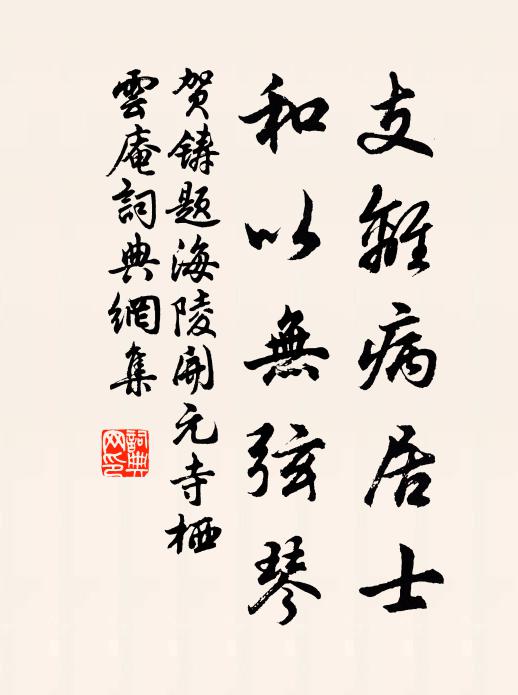 支離病居士
和以無弦琴
贺鑄题海陵開元寺栖
雲庵詞典網集
詞典网印